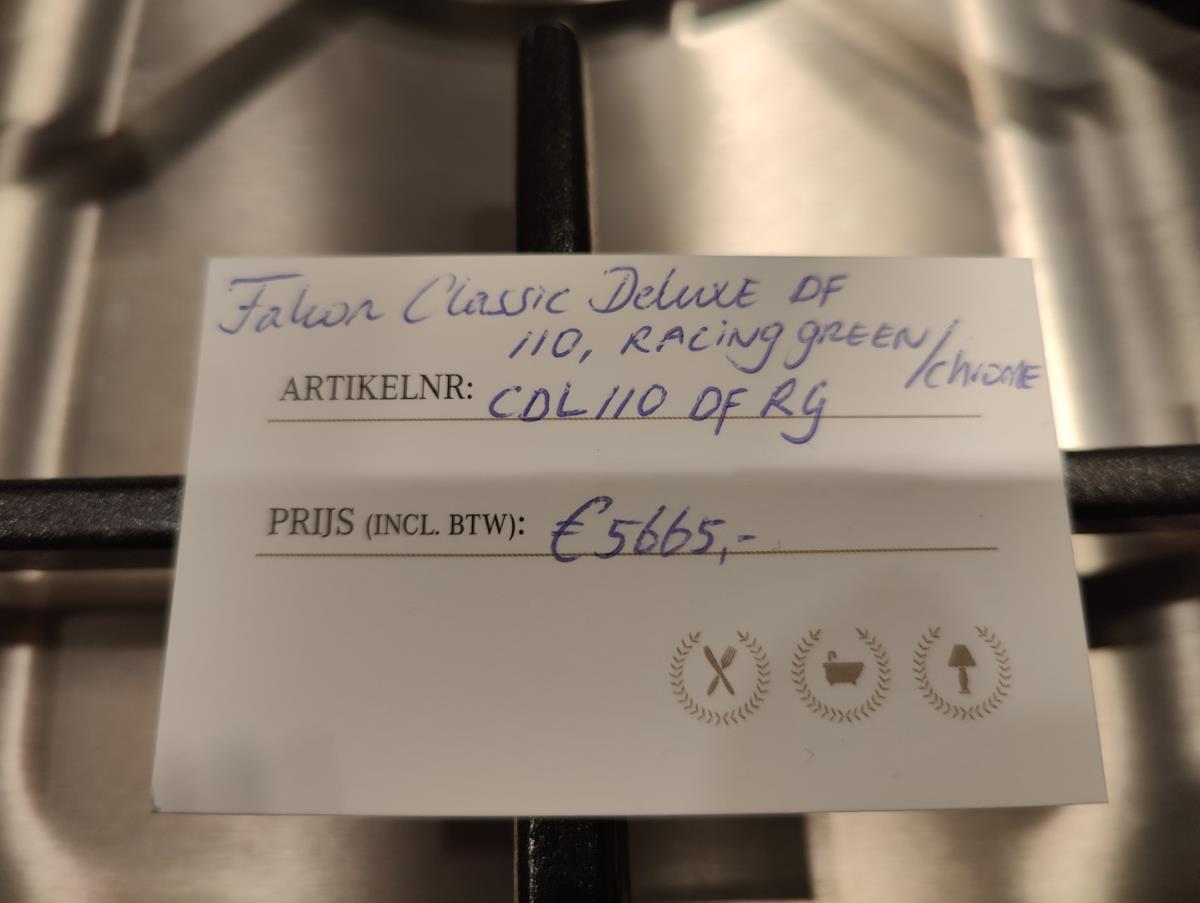 Falcon Classic Deluxe DF
110, RACING GREEN/chrome
ARTIKELNR: CDL110 DF RG
PRIJS (INCL. BTW): €5665,-